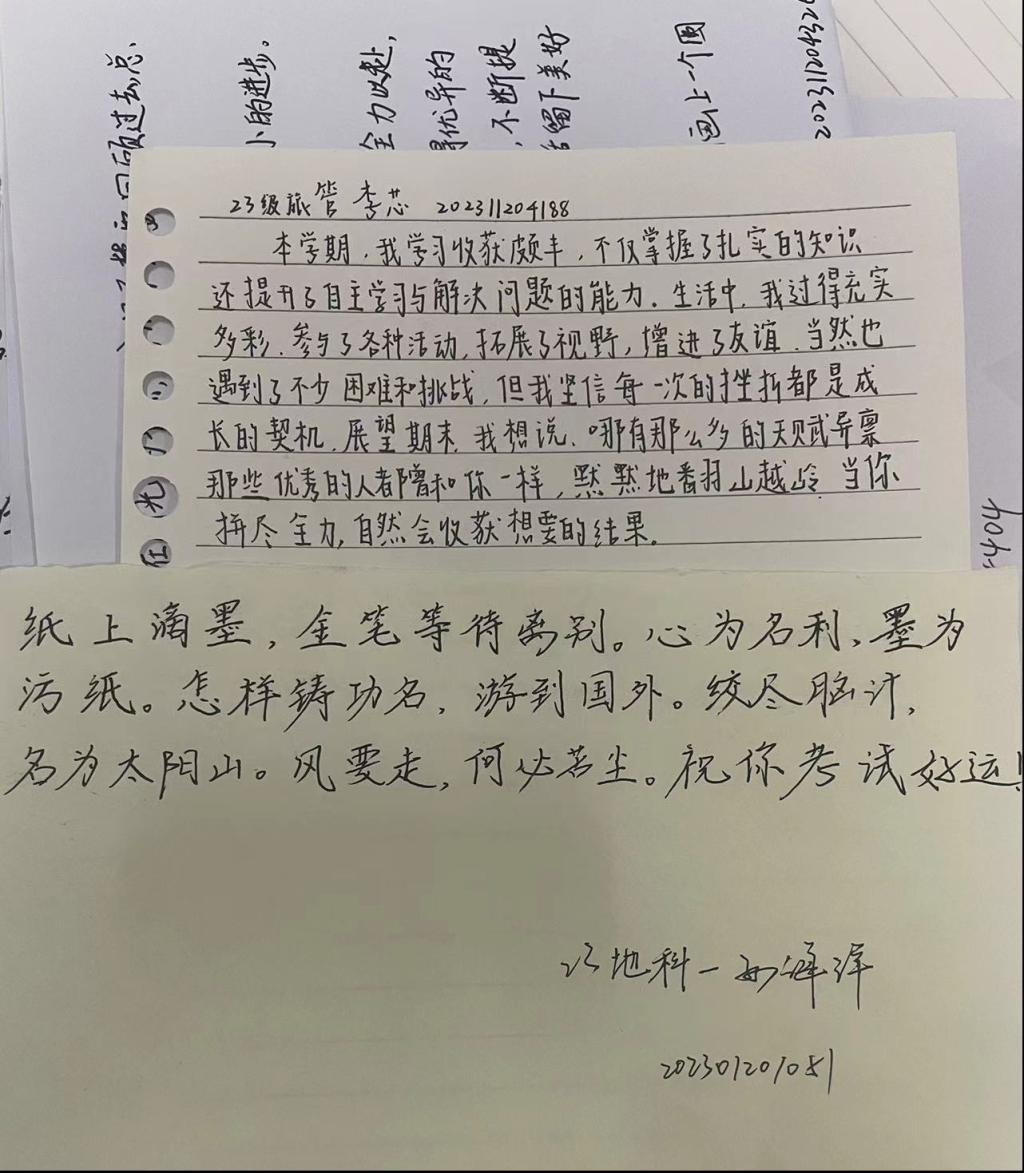 回顾过去总
小的进步。
全力以赴,
得优异的
,不断提
留下美好
画上一个圆
23级旅管 李芯 202311204188
本学期,我学习收获颇丰,不仅掌握了扎实的知识
还提升了自主学习与解决问题的能力.生活中,我过得充实
多彩.参与了各种活动,拓展了视野,增进了友谊.当然也
遇到了不少困难和挑战,但我坚信每一次的挫折都是成
长的契机.展望期末,我想说、哪有那么多的天赋异禀
那些优秀的人都曾和你一样,默默地翻山越岭.当你
拼尽全力,自然会收获想要的结果.
纸上滴墨,金笔等待离别。心为名利,墨为
污纸。怎样铸功名,游到国外。绞尽脑汁,
名为太阳山。风要走,何必若尘。祝你考试好运!
23地科一
202301201081